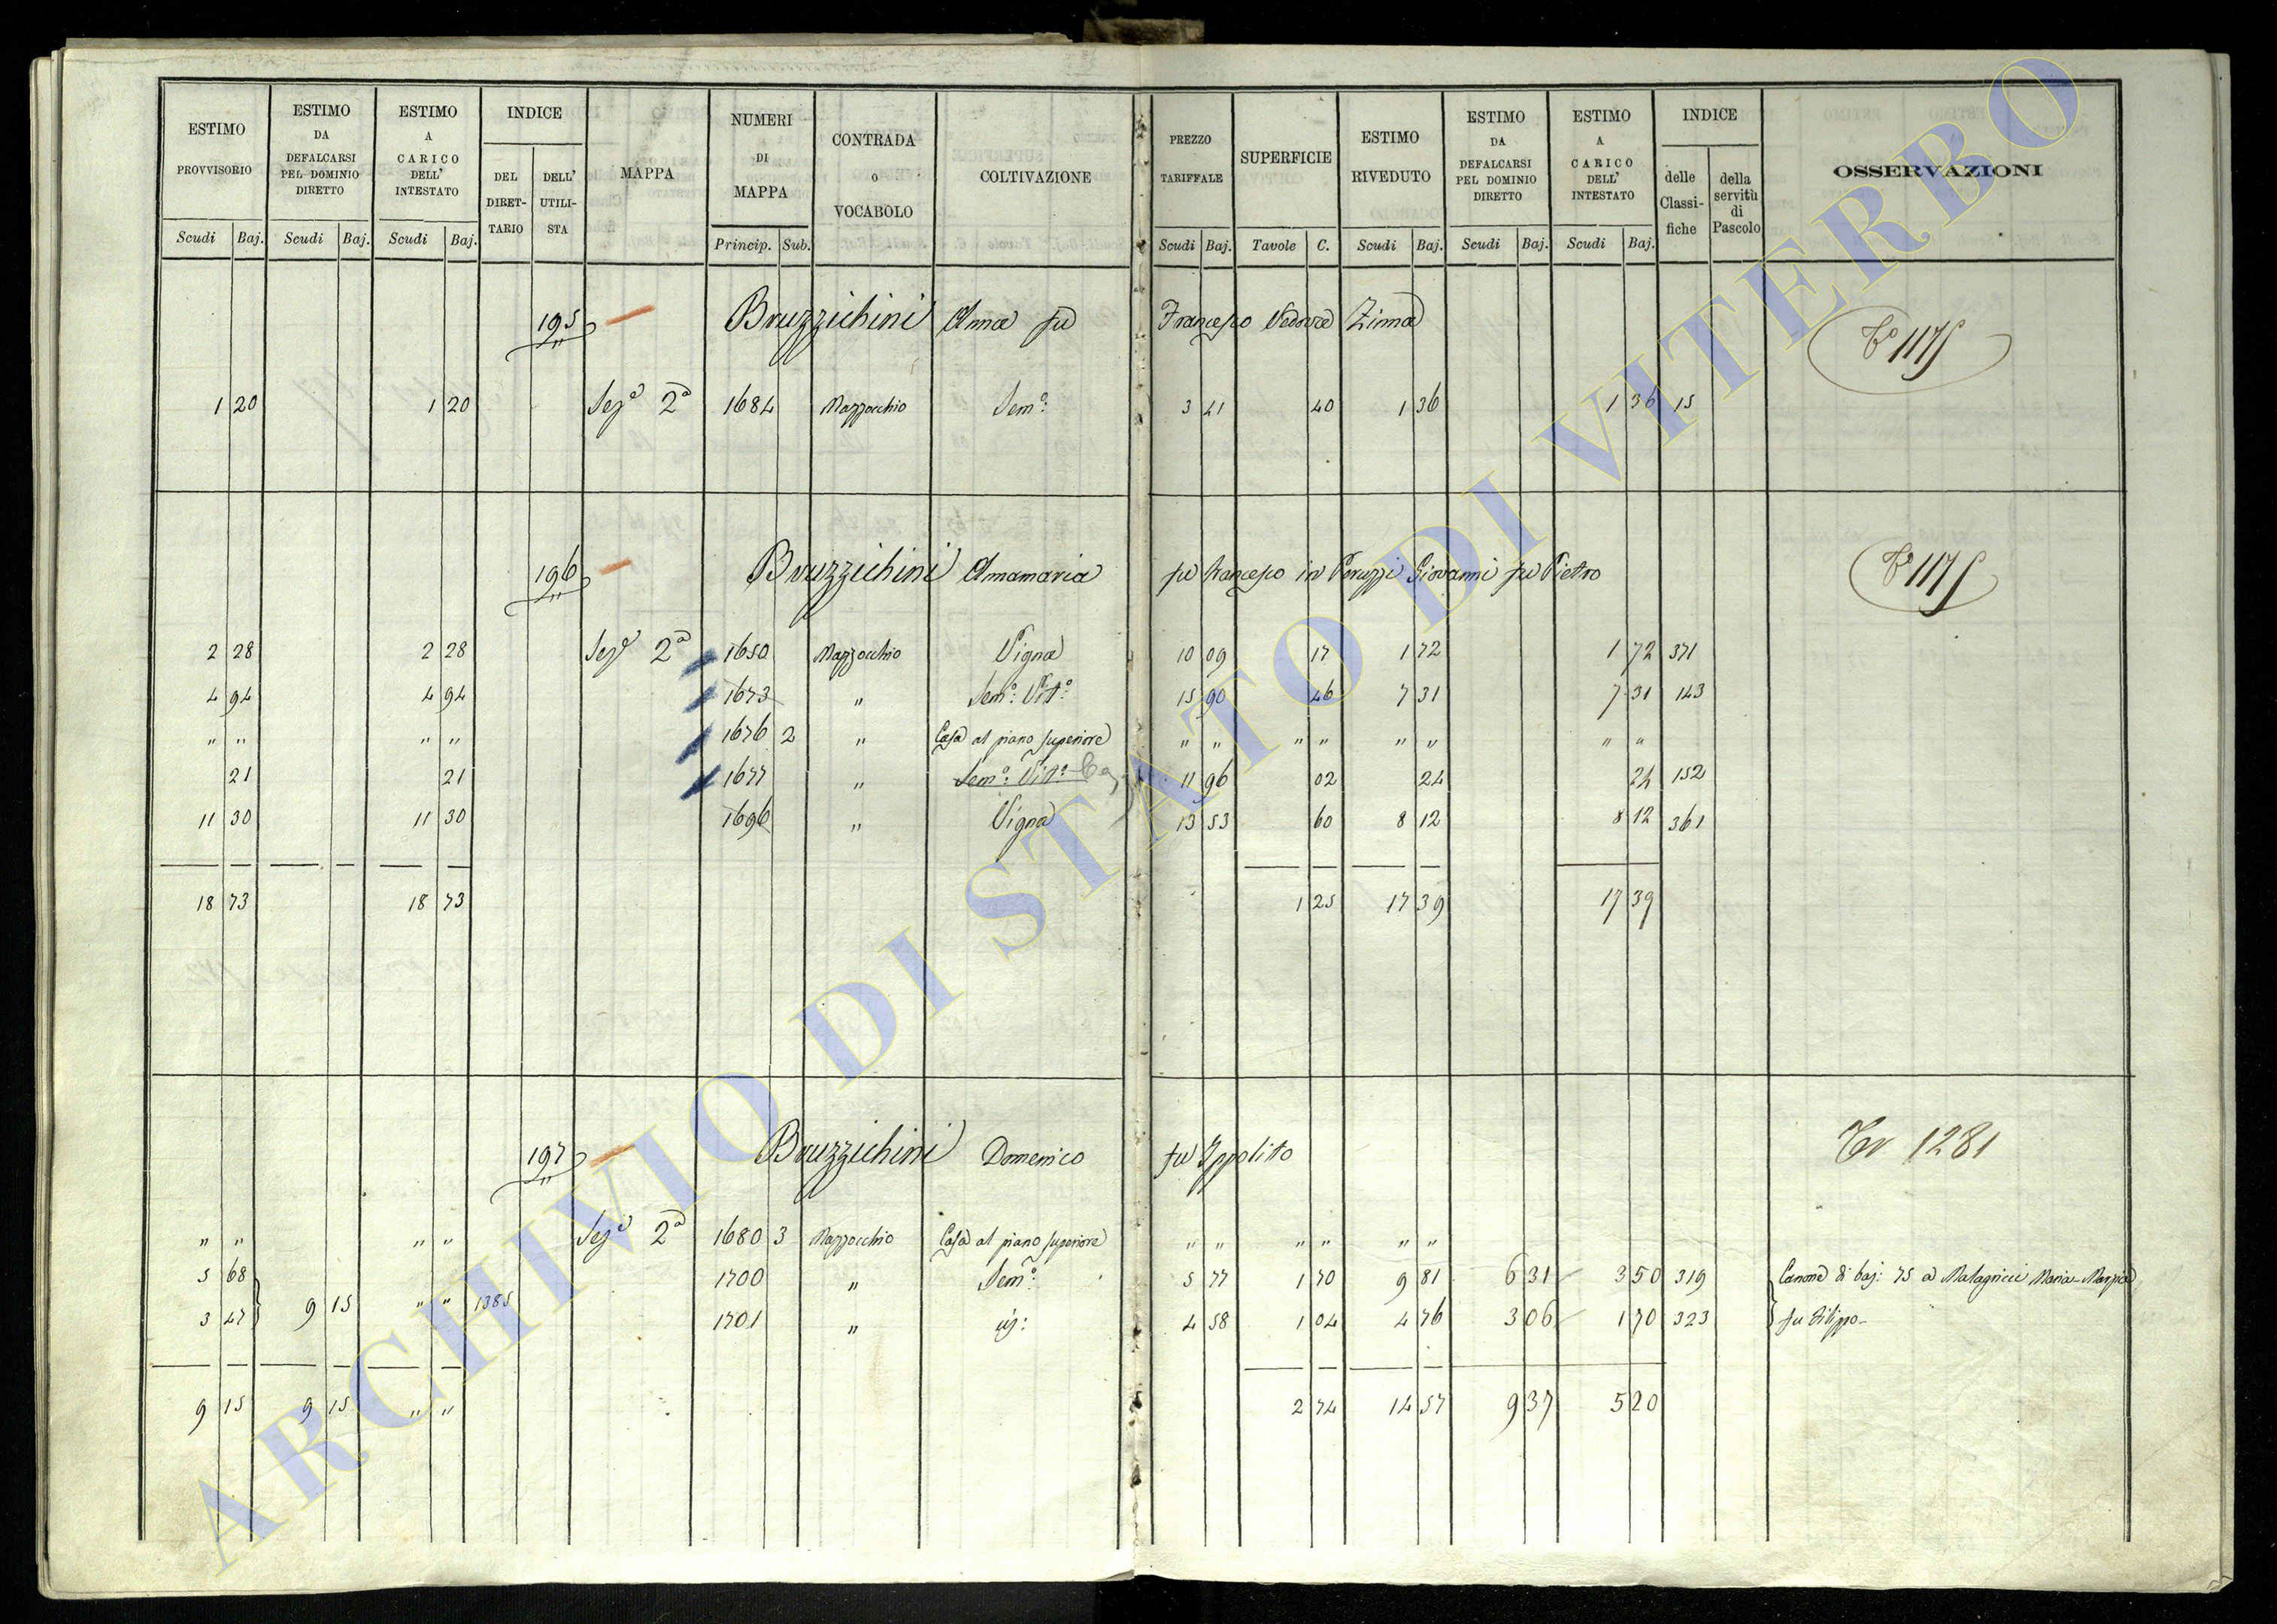 ESTIMO PROVVISORIO Scudi Baj.
ESTIMO DA DEFALCARSI PEL DOMINIO DIRETTO Scudi Baj.
ESTIMO A CARICO DELL' INTESTATO Scudi Baj.
INDICE DEL DIRET-TARIO DELL' UTILI-STA
MAPPA
NUMERI DI MAPPA Princip. Sub.
CONTRADA O VOCABOLO
COLTIVAZIONE
PREZZO TARIFFALE Scudi Baj.
SUPERFICIE Tavole C.
ESTIMO RIVEDUTO Scudi Baj.
ESTIMO DA DEFALCARSI PEL DOMINIO DIRETTO Scudi Baj.
ESTIMO A CARICO DELL' INTESTATO Scudi Baj.
INDICE delle Classi-fiche della servitù di Pascolo
OSSERVAZIONI
195 Bruzzichini Anna fu Francesco Vedova Zinna 1175
1 20 1 20 Seze 2a 1684 Mazzocchio Semo: 3 41 40 1 36 1 36 15
196 Bruzzichini Annamaria fu Francesco in Peruzzi Giovanni fu Pietro 1175
2 28 2 28 Seze 2a 1650 Mazzocchio Vigna 10 09 17 1 72 1 72 371
4 94 4 94 1673 " Semo: Vito: 15 90 46 7 31 7 31 143
" " " " 1676 2 " Casa al piano superiore " " " " " " " "
21 21 1677 " Semo: Vito: 11 96 02 24 24 152
11 30 11 30 1696 " Vigna 13 53 60 8 12 8 12 361
18 73 18 73 1 25 17 39 17 39
197 Bruzzichini Domenico fu Ippolito 1281
" " " " Seze 2a 1680 3 Mazzocchio Casa al piano superiore " " " " " "
5 68 1700 " Semo: 5 77 1 70 9 81 6 31 3 50 319 Canone di baj: 75 a Malagricci Maria-Marzia
3 47 9 15 " " 1385 1701 " id: 4 58 1 04 4 76 3 06 1 70 323 fu Filippo-
9 15 9 15 " " 2 74 14 57 9 37 5 20
ARCHIVIO DI STATO DI VITERBO